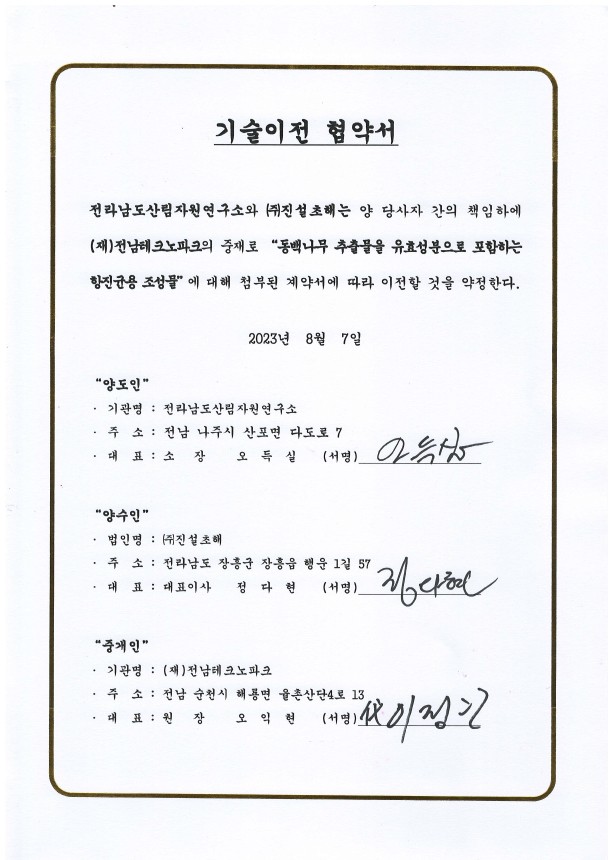 기술이전 협약서
전라남도산림자원연구소와 ㈜진설초해는 양 당사자 간의 책임하에
(재)전남테크노파크의 중재로 “동백나무 추출물을 유효성분으로 포함하는
항진균용 조성물”에 대해 첨부된 계약서에 따라 이전할 것을 약정한다.
2023년 8월 7일
“양도인”
· 기관명 : 전라남도산림자원연구소
· 주 소 : 전남 나주시 산포면 다도로 7
· 대 표 : 소 장 오 득 실 (서명) 오득실
“양수인”
· 법인명 : ㈜진설초해
· 주 소 : 전라남도 장흥군 장흥읍 행운 1길 57
· 대 표 : 대표이사 정 다 현 (서명) 정다현
“중개인”
· 기관명 : (재)전남테크노파크
· 주 소 : 전남 순천시 해룡면 율촌산단4로 13
· 대 표 : 원 장 오 익 현 (서명) 代 이정관